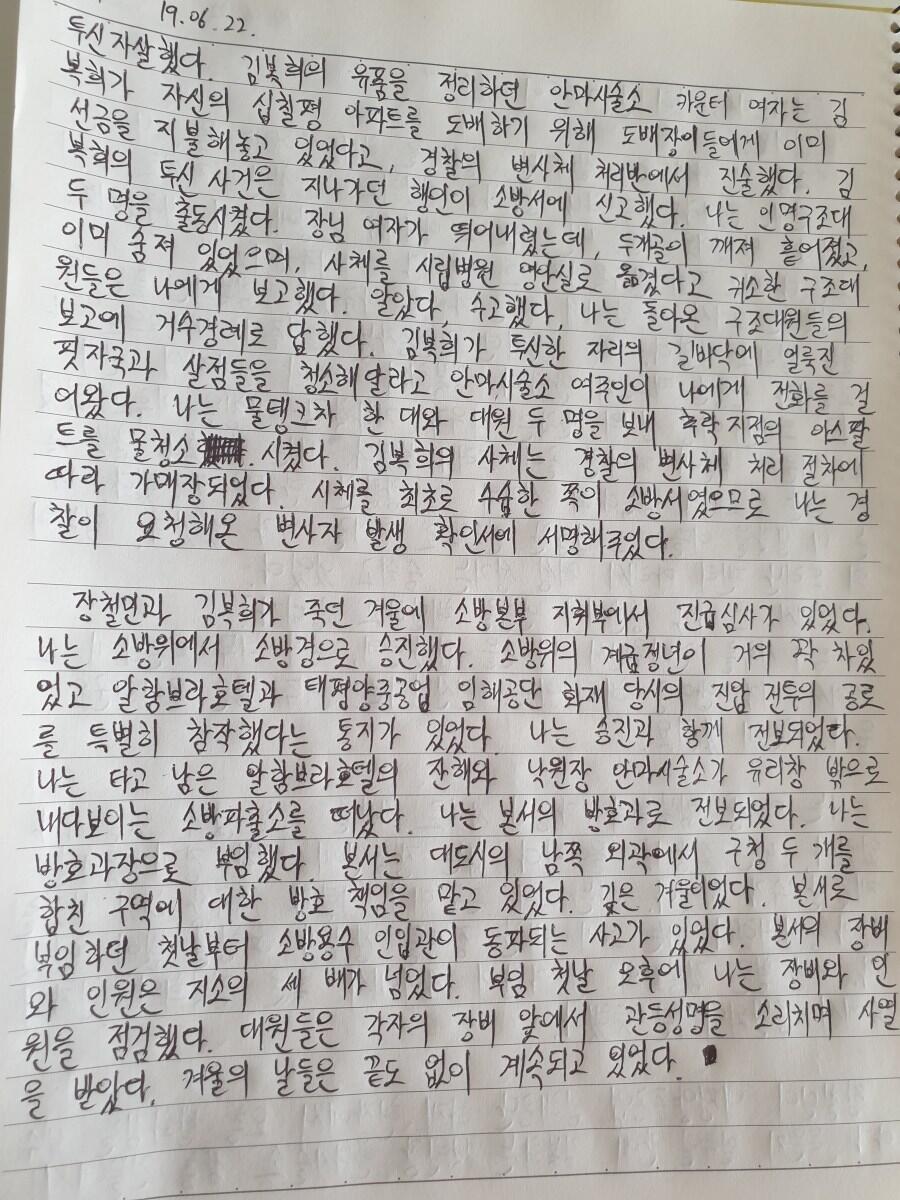 19.06.22.
투신자살했다. 김복희의 유품을 정리하던 안마시술소 카운터 여자는 김
복희가 자신의 십칠평 아파트를 도배하기 위해 도배장이들에게 이미
선금을 지불해놓고 있었다고, 경찰의 변사체 처리반에서 진술했다. 김
복희의 투신 사건은 지나가던 행인이 소방서에 신고했다. 나는 인명구조대
두 명을 출동시켰다. 장님 여자가 뛰어내렸는데, 두개골이 깨져 흩어졌고,
이미 숨져 있었으며, 사체를 시립병원 영안실로 옮겼다고 귀소한 구조대
원들은 나에게 보고했다. 알았다, 수고했다, 나는 돌아온 구조대원들의
보고에 거수경례로 답했다. 김복희가 투신한 자리의 길바닥에 얼룩진
핏자국과 살점들을 청소해달라고 안마시술소 여주인이 나에게 전화를 걸
어왔다. 나는 물탱크차 한 대와 대원 두 명을 보내 추락 지점의 아스팔
트를 물청소 시켰다. 김복희의 사체는 경찰의 변사체 처리 절차에
따라 가매장되었다. 시체를 최초로 수습한 쪽이 소방서였으므로 나는 경
찰이 요청해온 변사자 발생 확인서에 서명해주었다.
장철민과 김복희가 죽던 겨울에 소방본부 지휘부에서 진급심사가 있었다.
나는 소방위에서 소방경으로 승진했다. 소방위의 계급정년이 거의 꽉 차있
었고 알함브라호텔과 태평양중공업 임해공단 화재 당시의 진압 전투의 공로
를 특별히 참작했다는 통지가 있었다. 나는 승진과 함께 전보되었다.
나는 타고 남은 알함브라호텔의 잔해와 낙원장 안마시술소가 유리창 밖으로
내다보이는 소방파출소를 떠났다. 나는 본서의 방호과로 전보되었다. 나는
방호과장으로 부임했다. 본서는 대도시의 남쪽 외곽에서 구청 두 개를
합친 구역에 대한 방호 책임을 맡고 있었다. 깊은 겨울이었다. 본서로
부임하던 첫날부터 소방용수 인입관이 동파되는 사고가 있었다. 본서의 장비
와 인원은 지소의 세 배가 넘었다. 부임 첫날 오후에 나는 장비와 인
원을 점검했다. 대원들은 각자의 장비 앞에서 관등성명을 소리치며 사열
을 받았다. 겨울의 날들은 끝도 없이 계속되고 있었다.